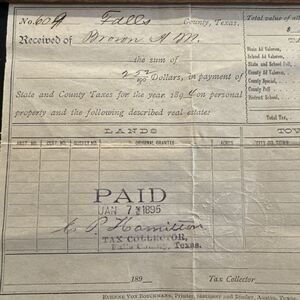 No. 609 Falls County, Texas.
Received of Brown A M.
the sum of
2 52/100 Dollars, in payment of
State and County Taxes for the year 1894 on personal
property and the following described real estate:
Total value of
State Ad Valorem,
State School,
State and School Poll
County Ad Valorem
County Special,
County Poll
District School,
Total Tax,
LANDS
TO
ABST. NO. CERT. NO. SURVEY NO. ORIGINAL GRANTEE ACRES CITY OR TOWN
PAID
JAN 7 1895
C P Hamilton
TAX COLLECTOR,
Falls County, Texas.
189 Tax Collector
Eugene Von Boeckmann, Printer, Stationer and Binder, Austin, Texas